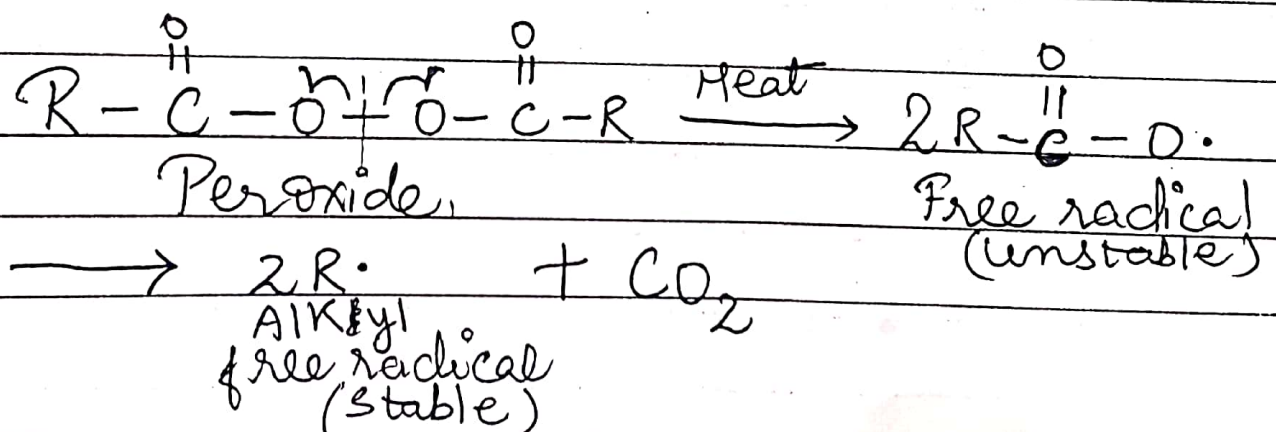 O O O
|| || ||
R - C - O + O - C - R Heat → 2R - C - O·
Peroxide, Free radical
(unstable)
→ 2R· + CO2
Alkyl
free radical
(stable)